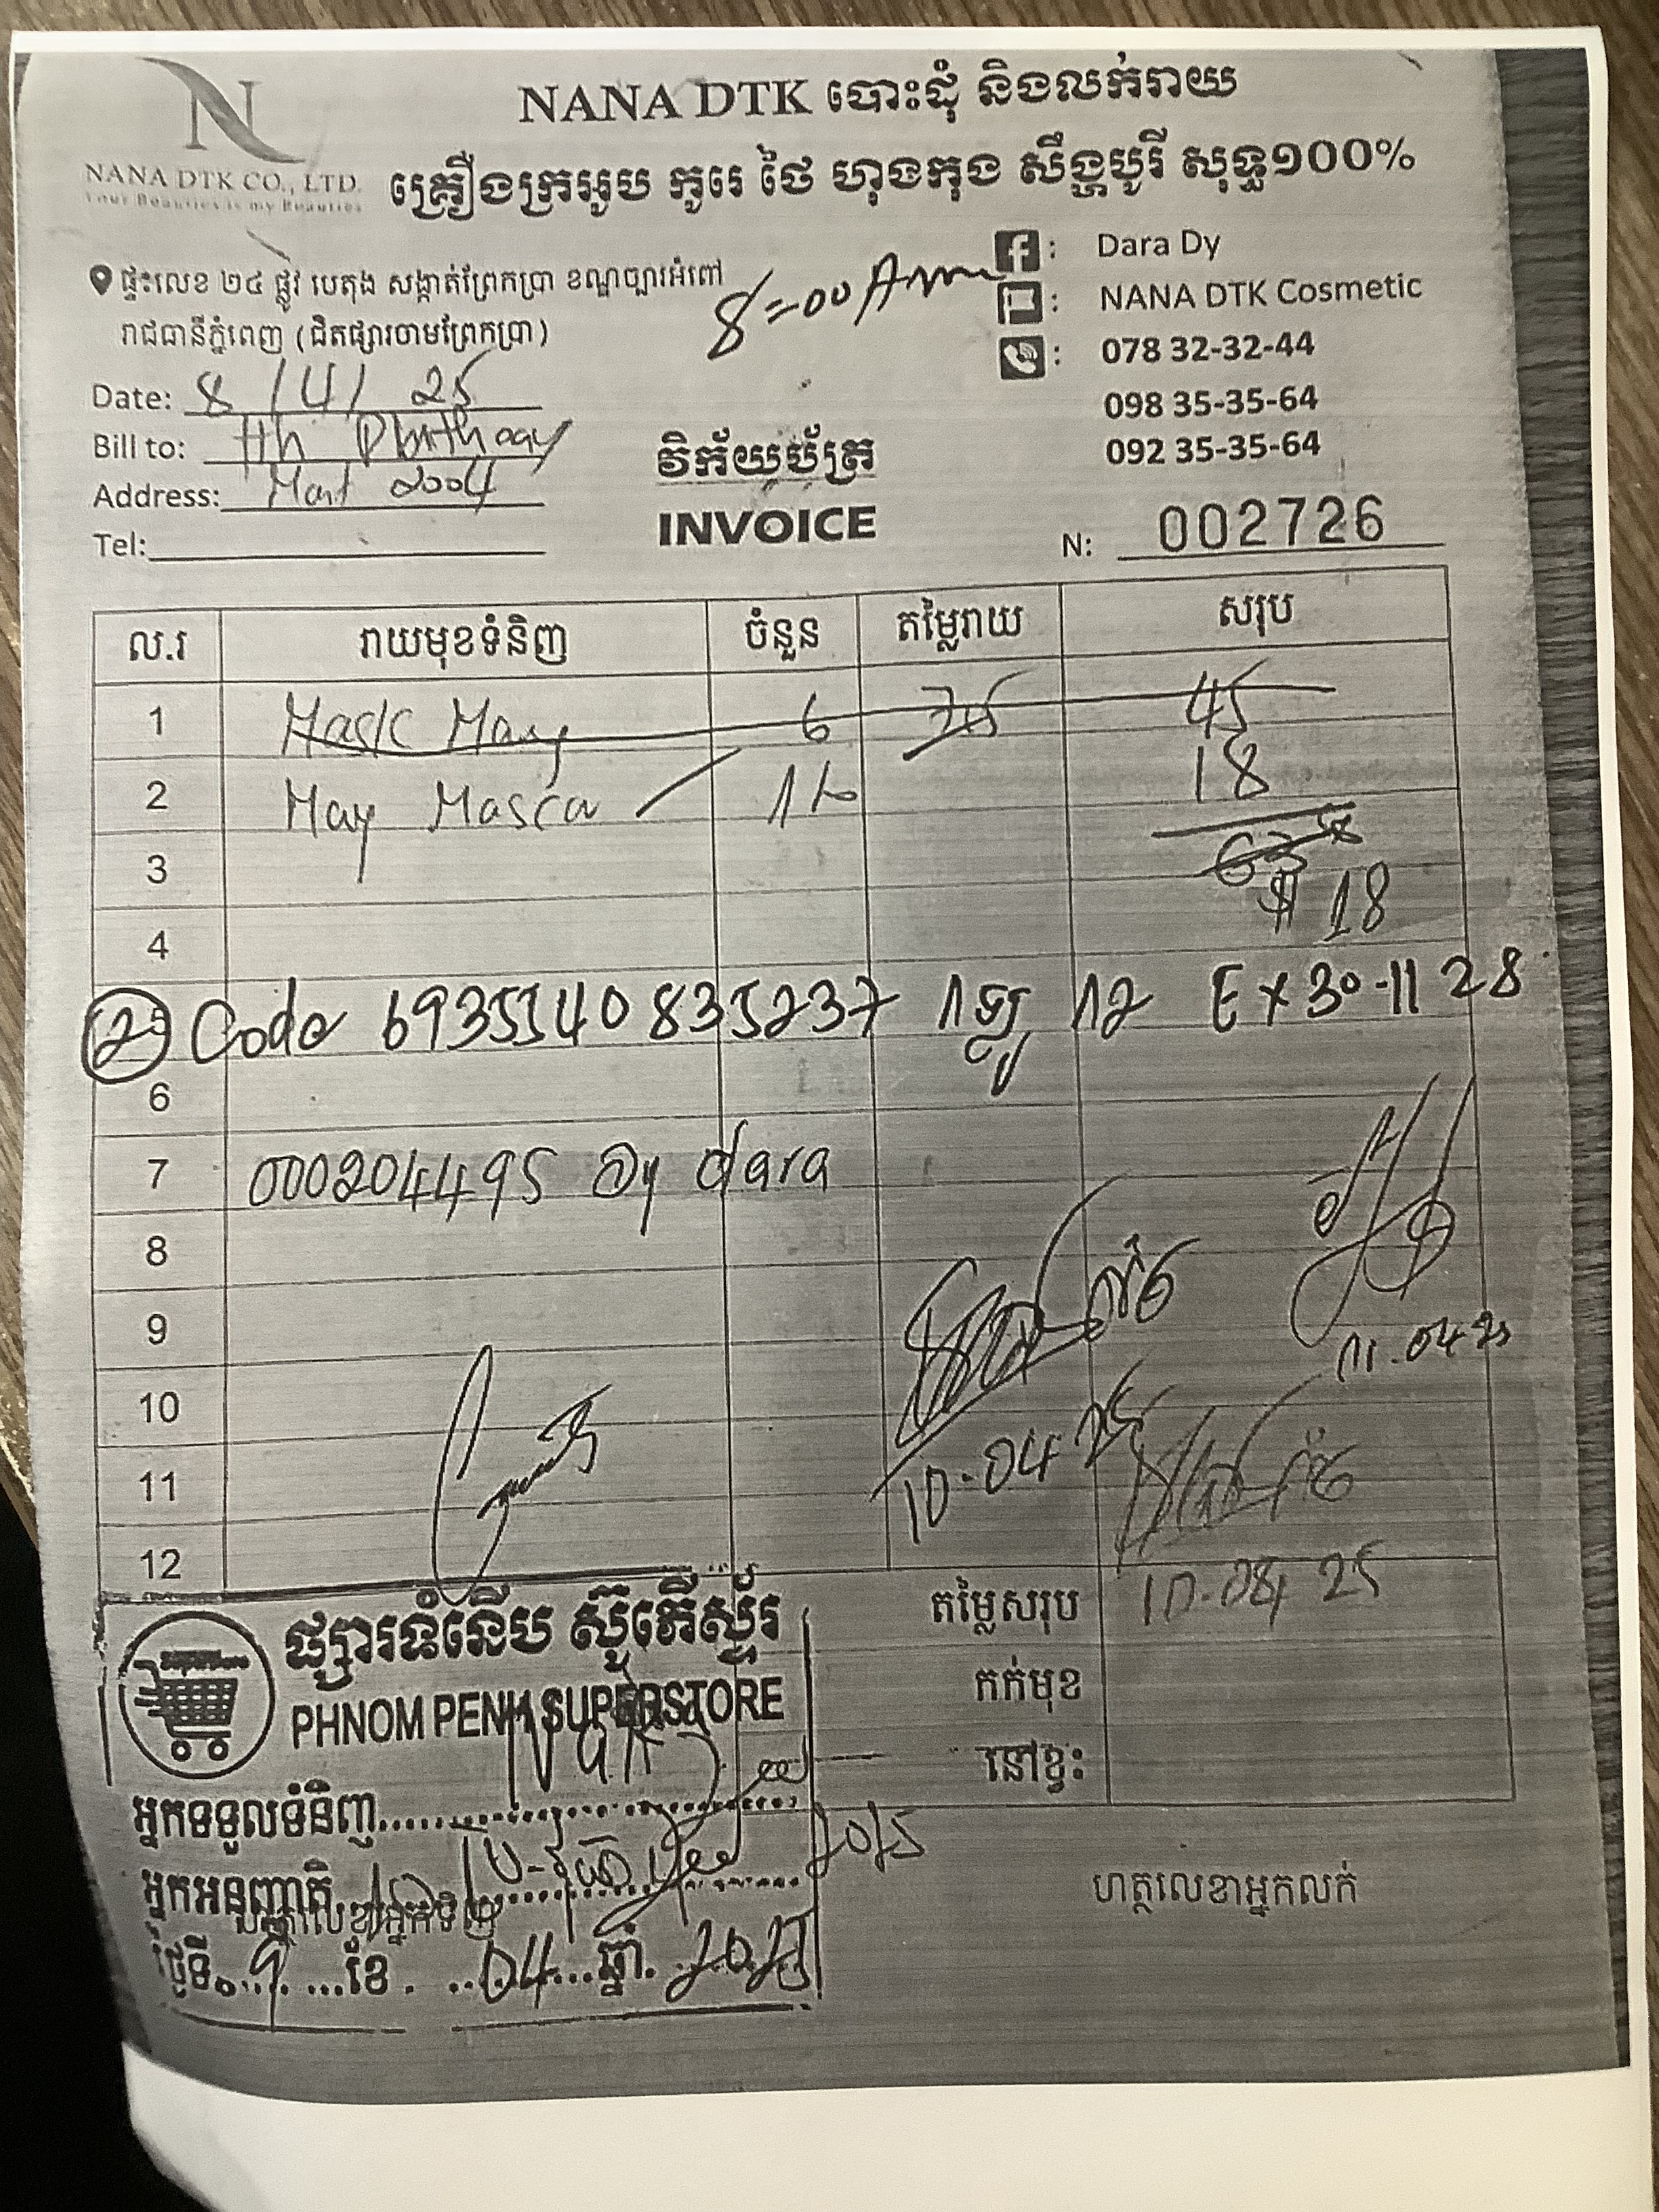 NANA DTK បោះដុំ និងលក់រាយ
NANA DTK CO., LTD.
Your Beauties is my Beauties
គ្រឿងក្រអូប កូរេ ថៃ ហុងកុង សឹង្ហបូរី សុទ្ធ១០០%
ផ្ទះលេខ ២៤ ផ្លូវ បេតុង សង្កាត់ព្រែកប្រា ខណ្ឌច្បារអំពៅ
រាជធានីភ្នំពេញ (ជិតផ្សារចាមព្រែកប្រា)
8=00 Am
: Dara Dy
: NANA DTK Cosmetic
: 078 32-32-44
098 35-35-64
092 35-35-64
Date: 8 / 4 / 25
Bill to:
Address: Mart 2004
Tel:
វិក័យប័ត្រ
INVOICE
N: 002726
ល.រ រាយមុខទំនិញ ចំនួន តម្លៃរាយ សរុប
1 Mask May 6 45
2 May Masca 18
3 63
$ 18
4
2 Code 6935140835237 12 EX 30-11 28
6
7 000204495 Dy dara
8
9
11.04 25
10
10-04 25
11
12
តម្លៃសរុប 10-04 25
កក់មុខ
នៅខ្វះ
ផ្សារទំនើប ស៊ូភើស្ទ័រ
PHNOM PENH SUPERSTORE
អ្នកទទួលទំនិញ
អ្នកអនុញ្ញាតិ
ហត្ថលេខាអ្នកទិញ
ហត្ថលេខាអ្នកលក់
ថ្ងៃទី 9 ខែ 04 ឆ្នាំ 2025